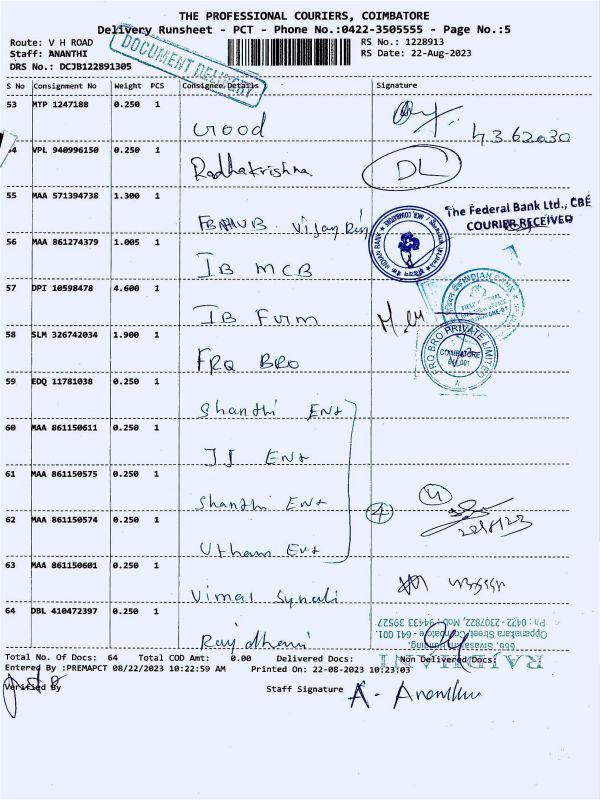 THE PROFESSIONAL COURIERS, COIMBATORE
Delivery Runsheet - PCT - Phone No.:0422-3505555 - Page No.:5
Route: V H ROAD
RS No.: 1228913
Staff: ANANTHI
RS Date: 22-Aug-2023
DRS No.: DCJB122891305
DOCUMENT DELIVERY
S No Consignment No Weight PCS Consignee Details Signature
53 MTP 1247188 0.250 1
Good
54 VPL 940996150 0.250 1
Radhakrishna
DL
55 MAA 571394738 1.300 1
The Federal Bank Ltd., CBE
COURIER RECEIVED
56 MAA 861274379 1.005 1
IB MCB
57 DPI 10598478 4.600 1
IB Furm
58 SLM 326742034 1.900 1
FRQ BRO
FRQ BRO PRIVATE LIMITED
COIMBATORE
641 001
59 EDQ 11781038 0.250 1
Shanthi Ent
60 MAA 861150611 0.250 1
JJ Ent
61 MAA 861150575 0.250 1
Shanthi Ent
4
62 MAA 861150574 0.250 1
4
Utham Ent
63 MAA 861150601 0.250 1
Vimal
64 DBL 410472397 0.250 1
Rajdhani
RAJDHANI
Oppanakara Street, Coimbatore - 641 001.
Ph : 0422 - 2307822, Mob : 94433 39527
Total No. Of Docs: 64 Total COD Amt: 0.00 Delivered Docs: Non Delivered Docs:
Entered By :PREMAPCT 08/22/2023 10:22:59 AM Printed On: 22-08-2023 10:23:03
Verified By
Staff Signature